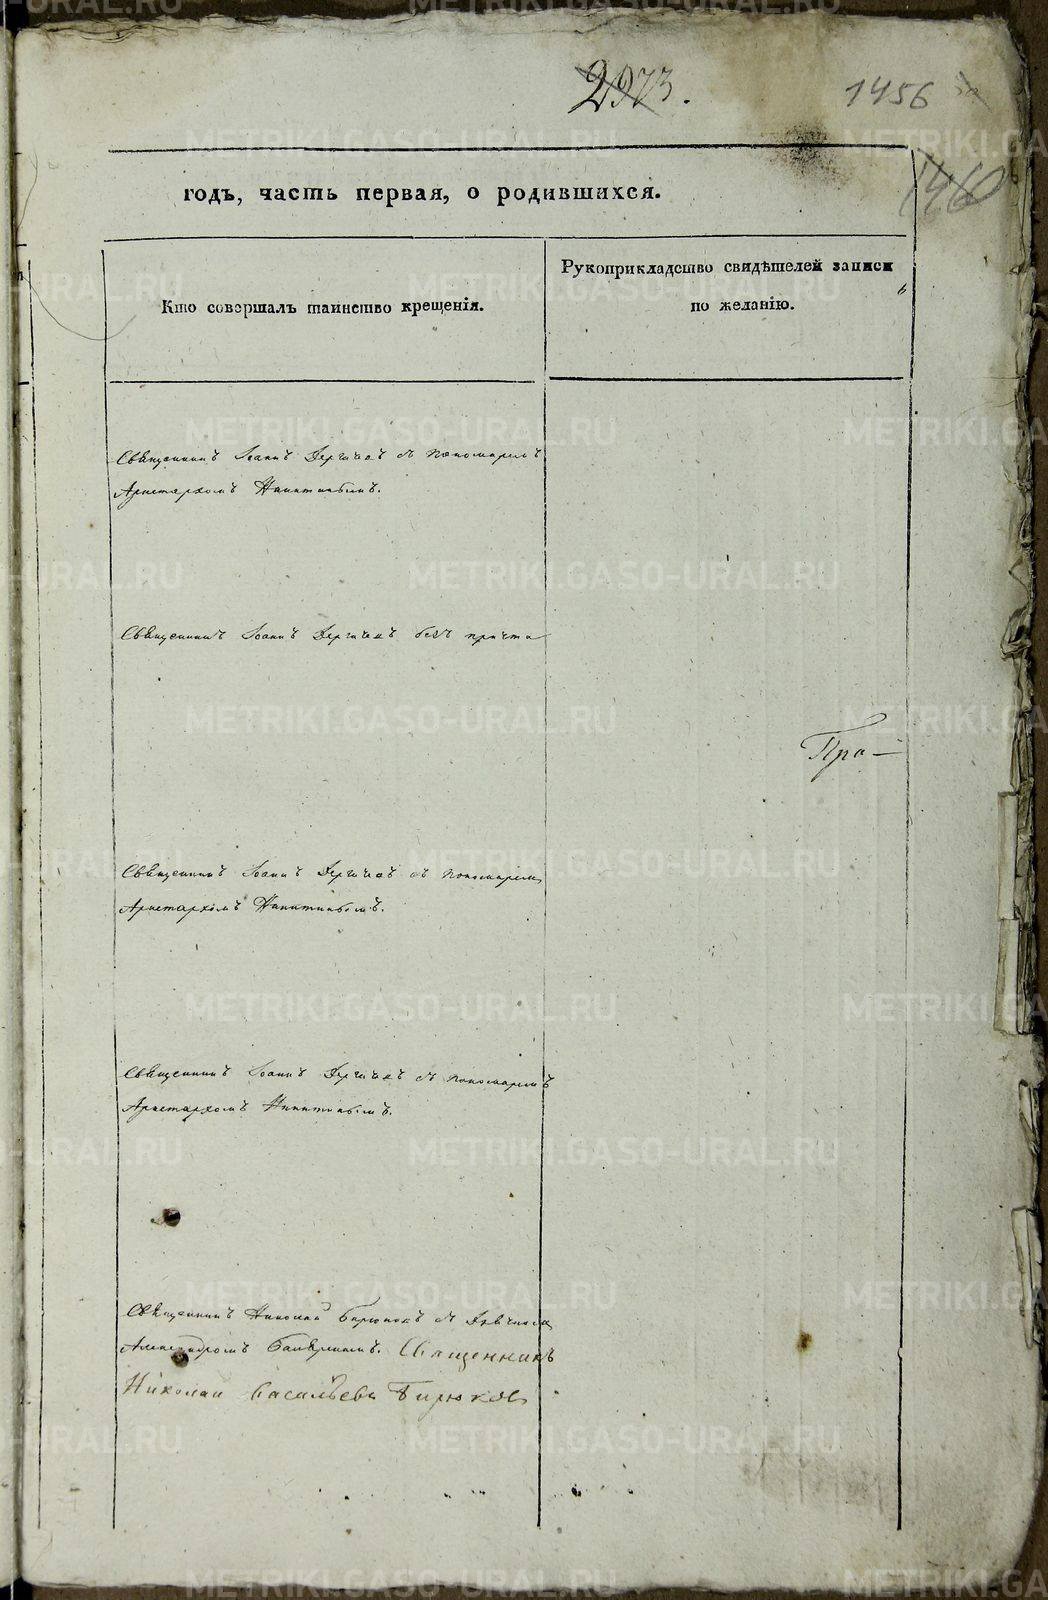 2973.
1456
1460
годъ, часть первая, о родившихся.
Кто совершалъ таинство крещенія.
Рукоприкладство свидѣтелей записи
по желанію.
Священникъ Іоаннъ съ пономаремъ
Аристархомъ Никитинымъ.
Священникъ Іоаннъ безъ причта
Пра-
Священникъ Іоаннъ съ пономаремъ
Аристархомъ Никитинымъ.
Священникъ Іоаннъ съ пономаремъ
Аристархомъ Никитинымъ.
Священникъ Николай Бирюковъ съ
Александромъ Священникъ
Николай Васильевъ Бирюковъ
METRIKI.GASO-URAL.RU